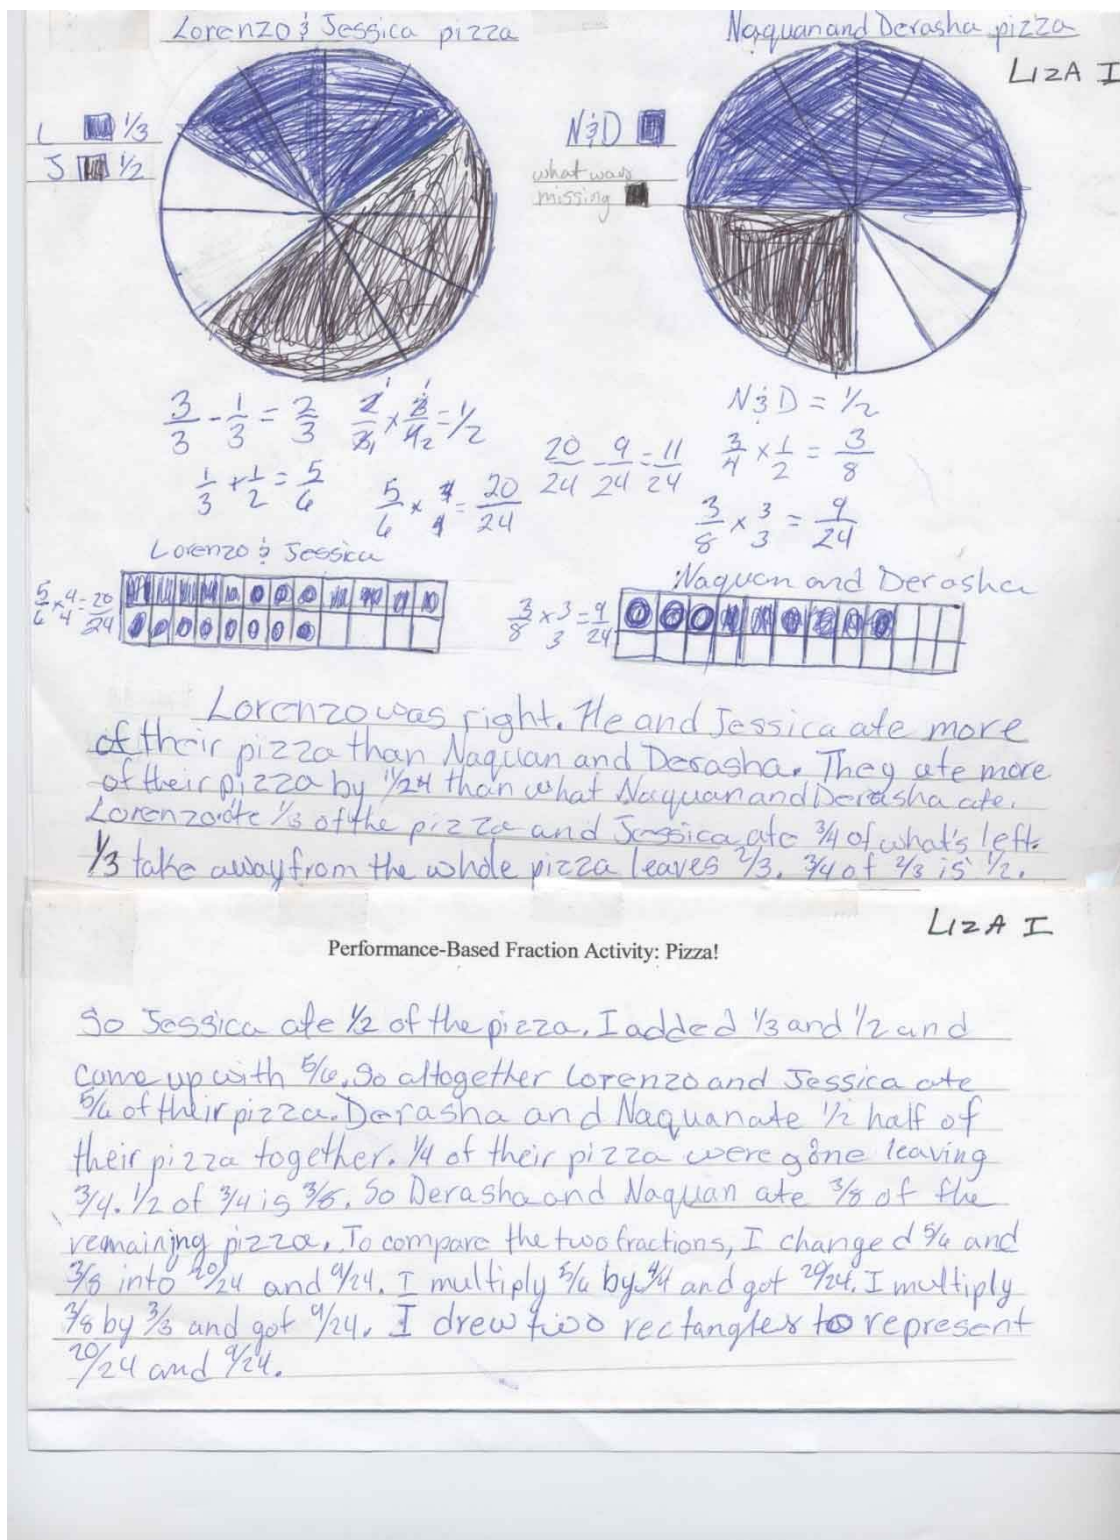 Lorenzo & Jessica pizza
Naquan and Derasha pizza
LIZA I
L 1/3
J 1/2
N&D
what was
missing
3/3 - 1/3 = 2/3
2/3 × 3/4 = 1/2
1/3 + 1/2 = 5/6
5/6 × 4/4 = 20/24
20/24 - 9/24 = 11/24
N & D = 1/2
3/4 × 1/2 = 3/8
3/8 × 3/3 = 9/24
Lorenzo & Jessica
5/6 × 4/4 = 20/24
Naquan and Derasha
3/8 × 3/3 = 9/24
Lorenzo was right. He and Jessica ate more
of their pizza than Naquan and Derasha. They ate more
of their pizza by 11/24 than what Naquan and Derasha ate.
Lorenzo ate 1/3 of the pizza and Jessica ate 3/4 of what's left.
1/3 take away from the whole pizza leaves 2/3. 3/4 of 2/3 is 1/2.
LIZA I
Performance-Based Fraction Activity: Pizza!
So Jessica ate 1/2 of the pizza. I added 1/3 and 1/2 and
came up with 5/6. So altogether Lorenzo and Jessica ate
5/6 of their pizza. Derasha and Naquan ate 1/2 half of
their pizza together. 1/4 of their pizza were gone leaving
3/4. 1/2 of 3/4 is 3/8. So Derasha and Naquan ate 3/8 of the
remaining pizza. To compare the two fractions, I changed 5/6 and
3/8 into 20/24 and 9/24. I multiply 5/6 by 4/4 and got 20/24. I multiply
3/8 by 3/3 and got 9/24. I drew two rectangles to represent
20/24 and 9/24.